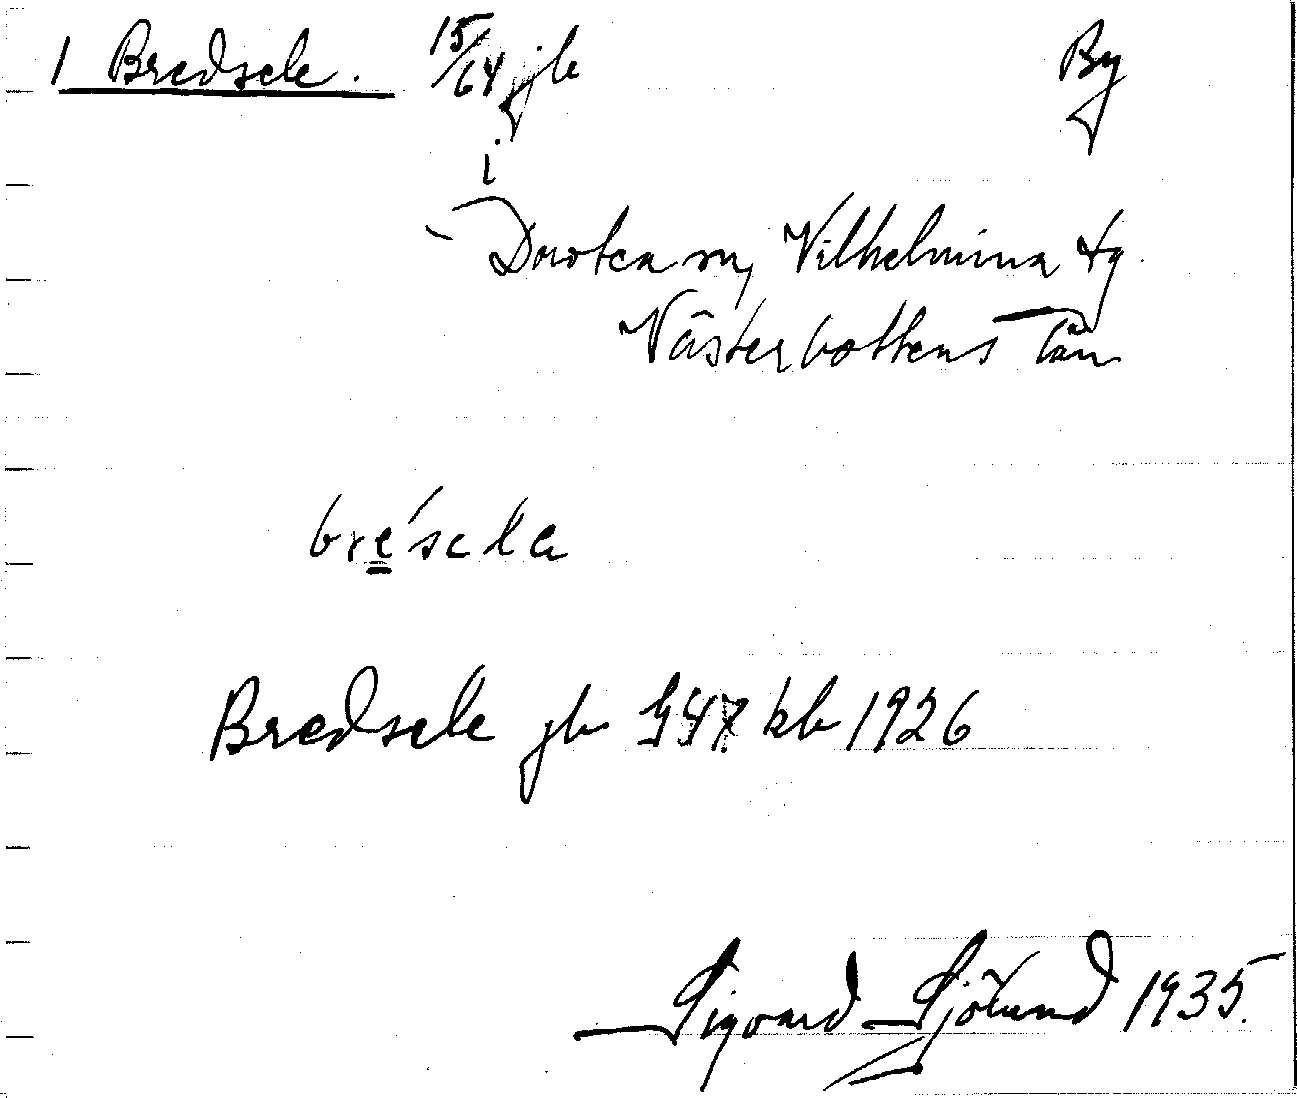 1 Bredsele. 15/64 jb By
i
Dorotea sn, Vilhelmina tg.
Västerbottens län
bre̲´sela
Bredsele jb G47 kb 1926
Sigvard Sjölund 1935.